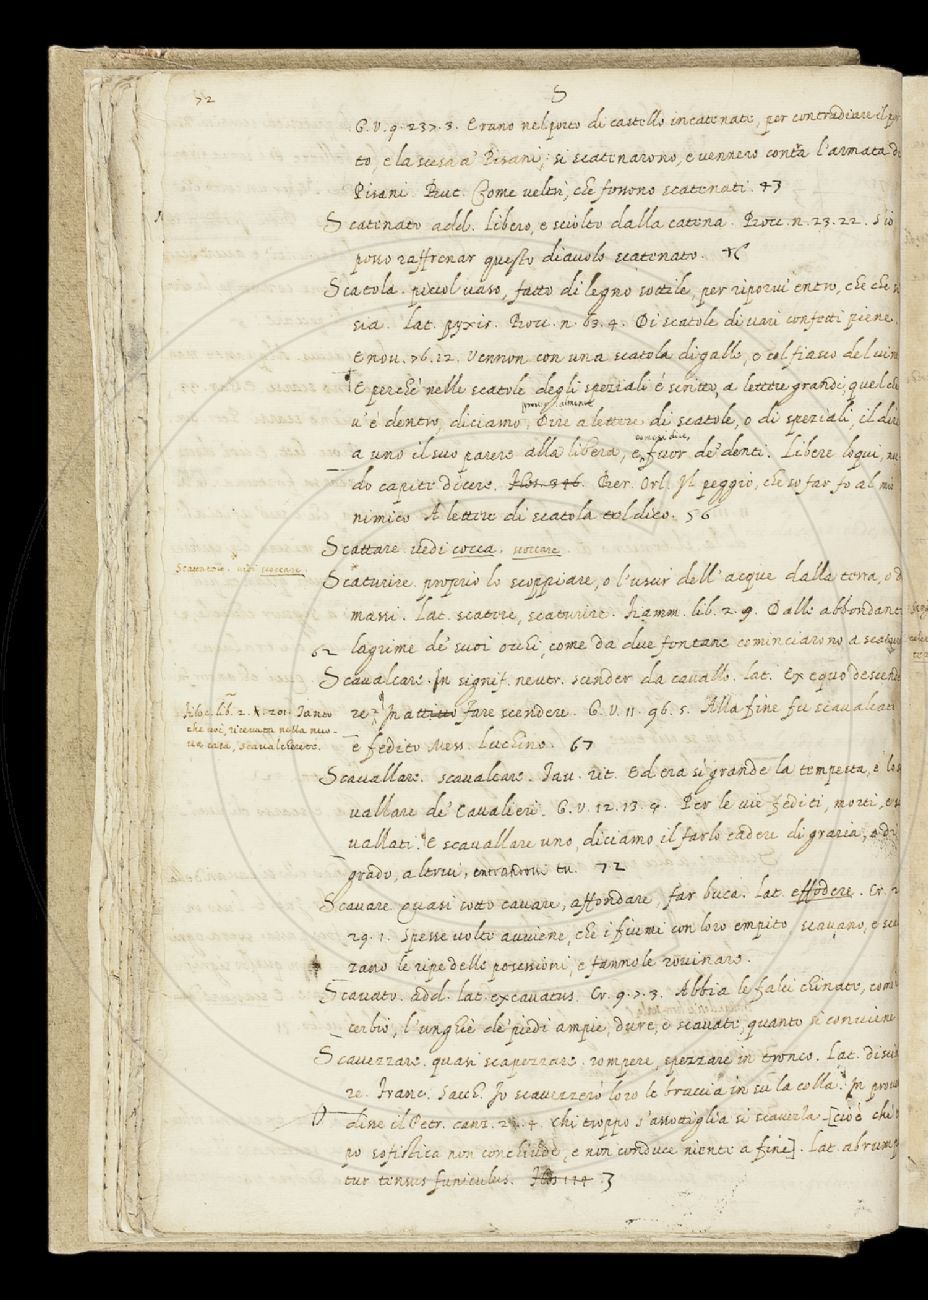 72
S
G. V. 9. 237. 3. Erano nel porto di castello incatenate, per contradiare il por
to, e la scesa a' Pisani, si scatenarono, e vennero contra l'armata de
Pisani. But. Come veltri, che fossono scatenati. 43
Scatenato add. libero, e sciolto dalla catena. Bocc. n. 23. 22. S'io
posso raffrenar questo diavolo scatenato.
Scatola. piccol vaso, fatto di legno sottile, per riporvi entro, che che si
sia. Lat. pyxis. Bocc. n. 63. 4. Di scatole di vari confetti piene.
E nov. 76. 12. Vennon con una scatola di galle, e col fiasco del vin
E perchè nelle scatole degli speziali è scritto, a lettere grandi, quel che
proverbialmente
v'è dentro, diciamo, Dire a lettere di scatole, o di speziali, il dire
come si dice,
a uno il suo parere alla libera, e fuor de' denti. Libere loqui, nu
do capite dicere. Flos. 346. Ber. Orl. Il peggio, che so far fo al mio
nimico A lettere di scatola tel dico. 56
Scattare. vedi cocca. scoccare.
Scaturire. proprio lo scoppiare, o l'uscir dell'acque dalla terra, o d
massi. Lat. scatere, scaturire. Fiamm. lib. 2. 9. Dalle abbondanti
62 lagrime de' suoi occhi, come da due fontane cominciarono a scaturire
Scavalcare. In signif. neutr. scender da cavallo. Lat. Ex equo descende
re. In attivo fare scendere. G. V. 11. 96. 5. Alla fine fu scavalcato
che voi, ricevuta nella nos-
tra casa, scavalchiate.
e fedito Mess. Luchino. 67
Scavallare. scavalcare. Tav. rit. Ed era sì grande la tempesta, e lo s
vallare de' Cavalieri. G. V. 12. 13. 4. Per le vie fediti, morti, e sca
vallati. E scavallare uno, diciamo il farlo cadere di grazia, o di
grado, altrui, entrandovi tu. 72
Scavare quasi sotto cavare, affondare, far buca. Lat. effodere. Cr. 2
29. 1. Spesse volte avviene, che i fiumi con loro empito, scavano, e scal
zano le ripe delle posessioni, e fannole rovinare.
Scavato. add. lat. excavatus. Cr. 9. 7. 3. Abbia le falci chinate, come
cerbio, l'unghie de' piedi ampie, dure, e scavate, quanto si conviene
Scavezzare. quasi scapezzare. rompere, spezzare in tronco. Lat. discin
re. Franc. Sacch. Io scavezzerò loro le braccia in su la colla. In prover
disse il Petr. canz. 22. 4. Chi troppo s'assottiglia si scavezza. [cioè chi t
po sofistica non conchiude, e non conduce niente a fine]. Lat. abrump
tur tensus funiculus. Flos 114 3